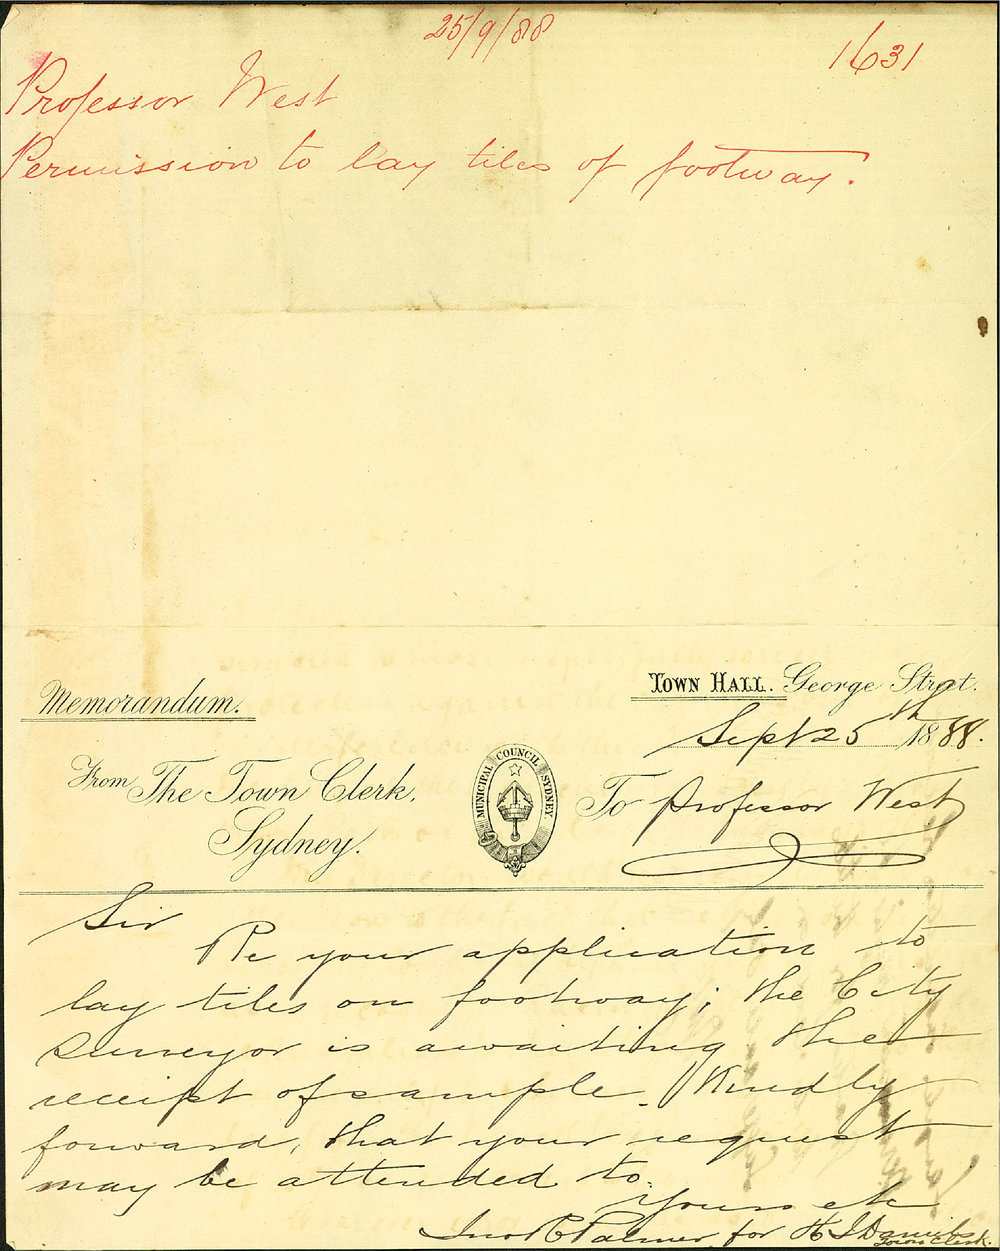 25/9/88
1631
Professor West
Permission to lay tiles of footway.
Memorandum.
Town Hall. George Street.
Sept 25th 1888.
From The Town Clerk,
Sydney.
MUNICIPAL COUNCIL SYDNEY.
To Professor West
Sir
Re your application to
lay tiles on footway; the City
Surveyor is awaiting the
receipt of sample. Kindly
forward, that your request
may be attended to.
Yours etc
Jno C Palmer for H J Daniels
Town Clerk.